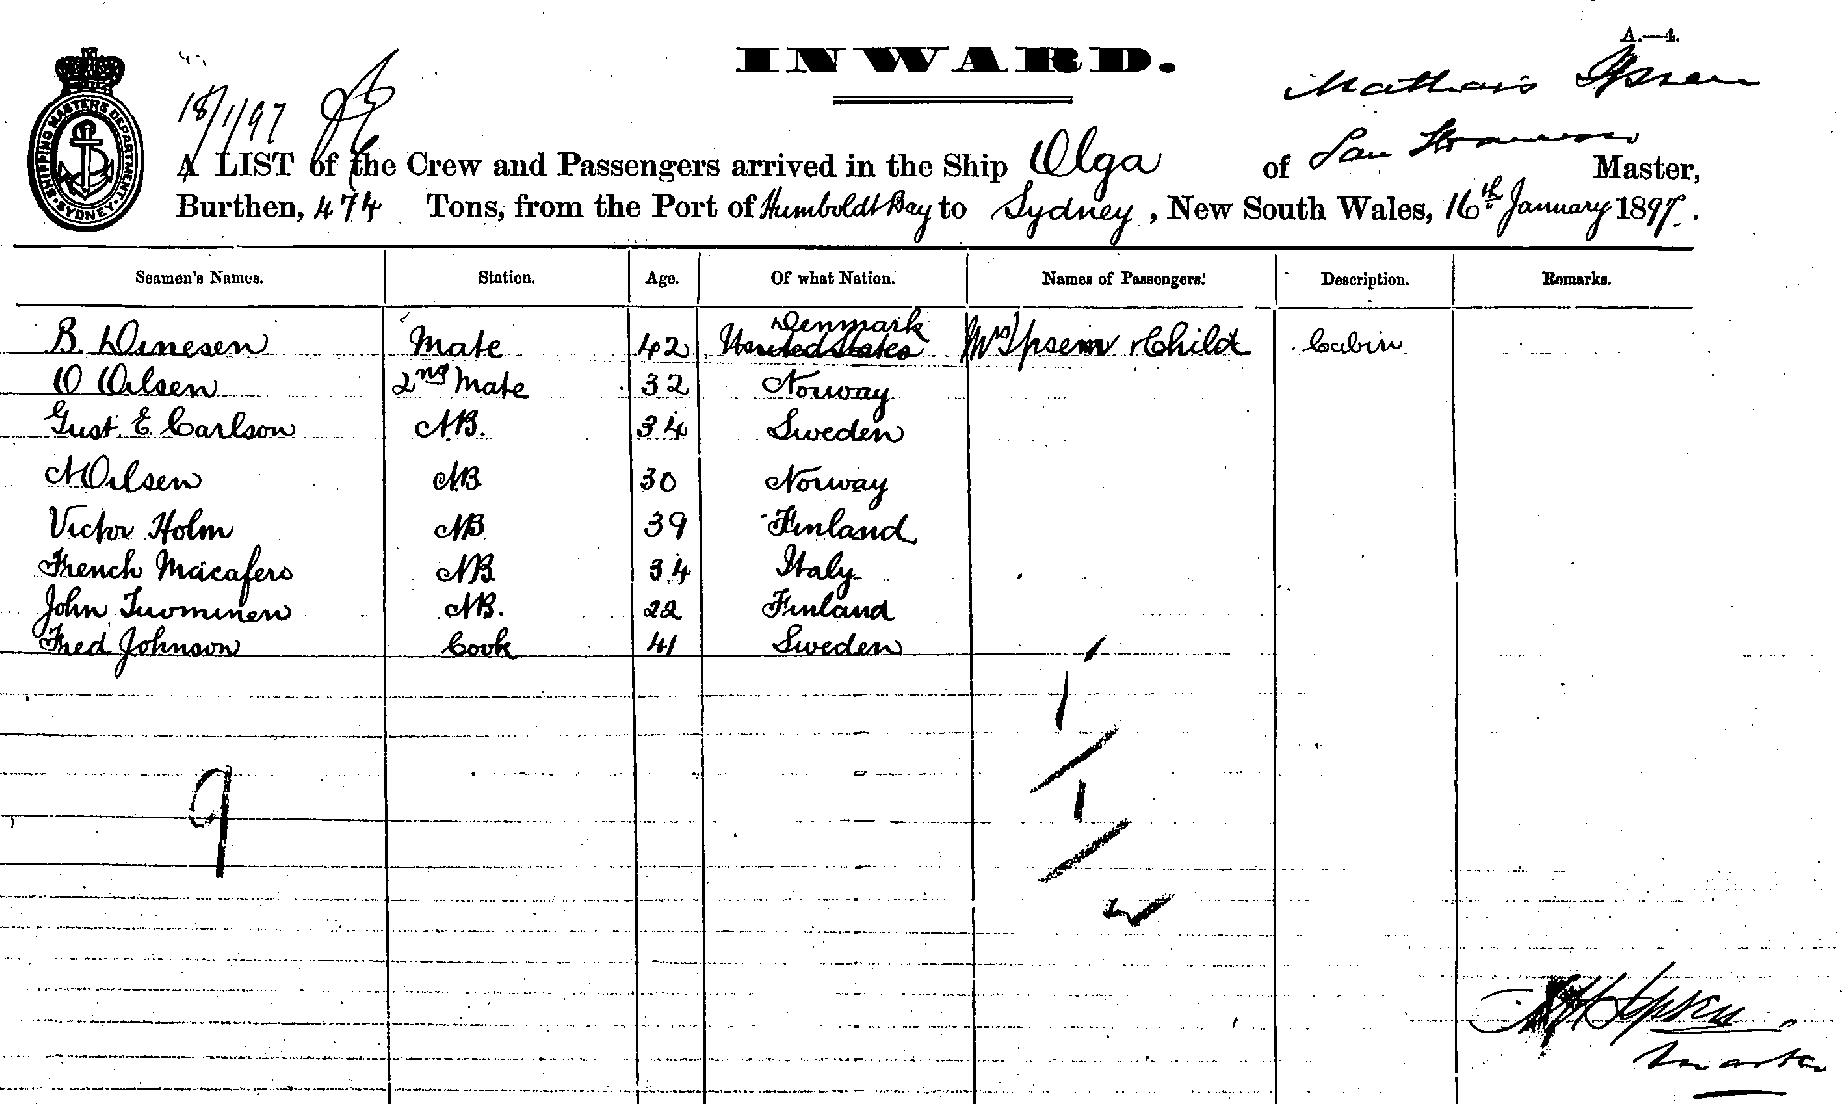 A.—4.
INWARD.
Mathais Ipsen
18/1/97
SHIPPING MASTERS DEPARTMENT SYDNEY
A LIST of the Crew and Passengers arrived in the Ship Olga of San Master,
Burthen, 474 Tons, from the Port of Humboldt Bay to Sydney, New South Wales, 16th January 1897.
Seamen's Names. Station. Age. Of what Nation. Names of Passengers. Description. Remarks.
Denmark
B. Dinesen Mate 42 United States Mrs Ipsen & Child Cabin
O Oilsen 2nd Mate 32 Norway
Gust. E. Carlson AB. 34 Sweden
A Oilsen AB 30 Norway
Victor Holm AB 39 Finland
French Macafero AB 34 Italy
John Tuominen AB. 22 Finland
Fred Johnson Cook 41 Sweden
9
Ipsen
Master